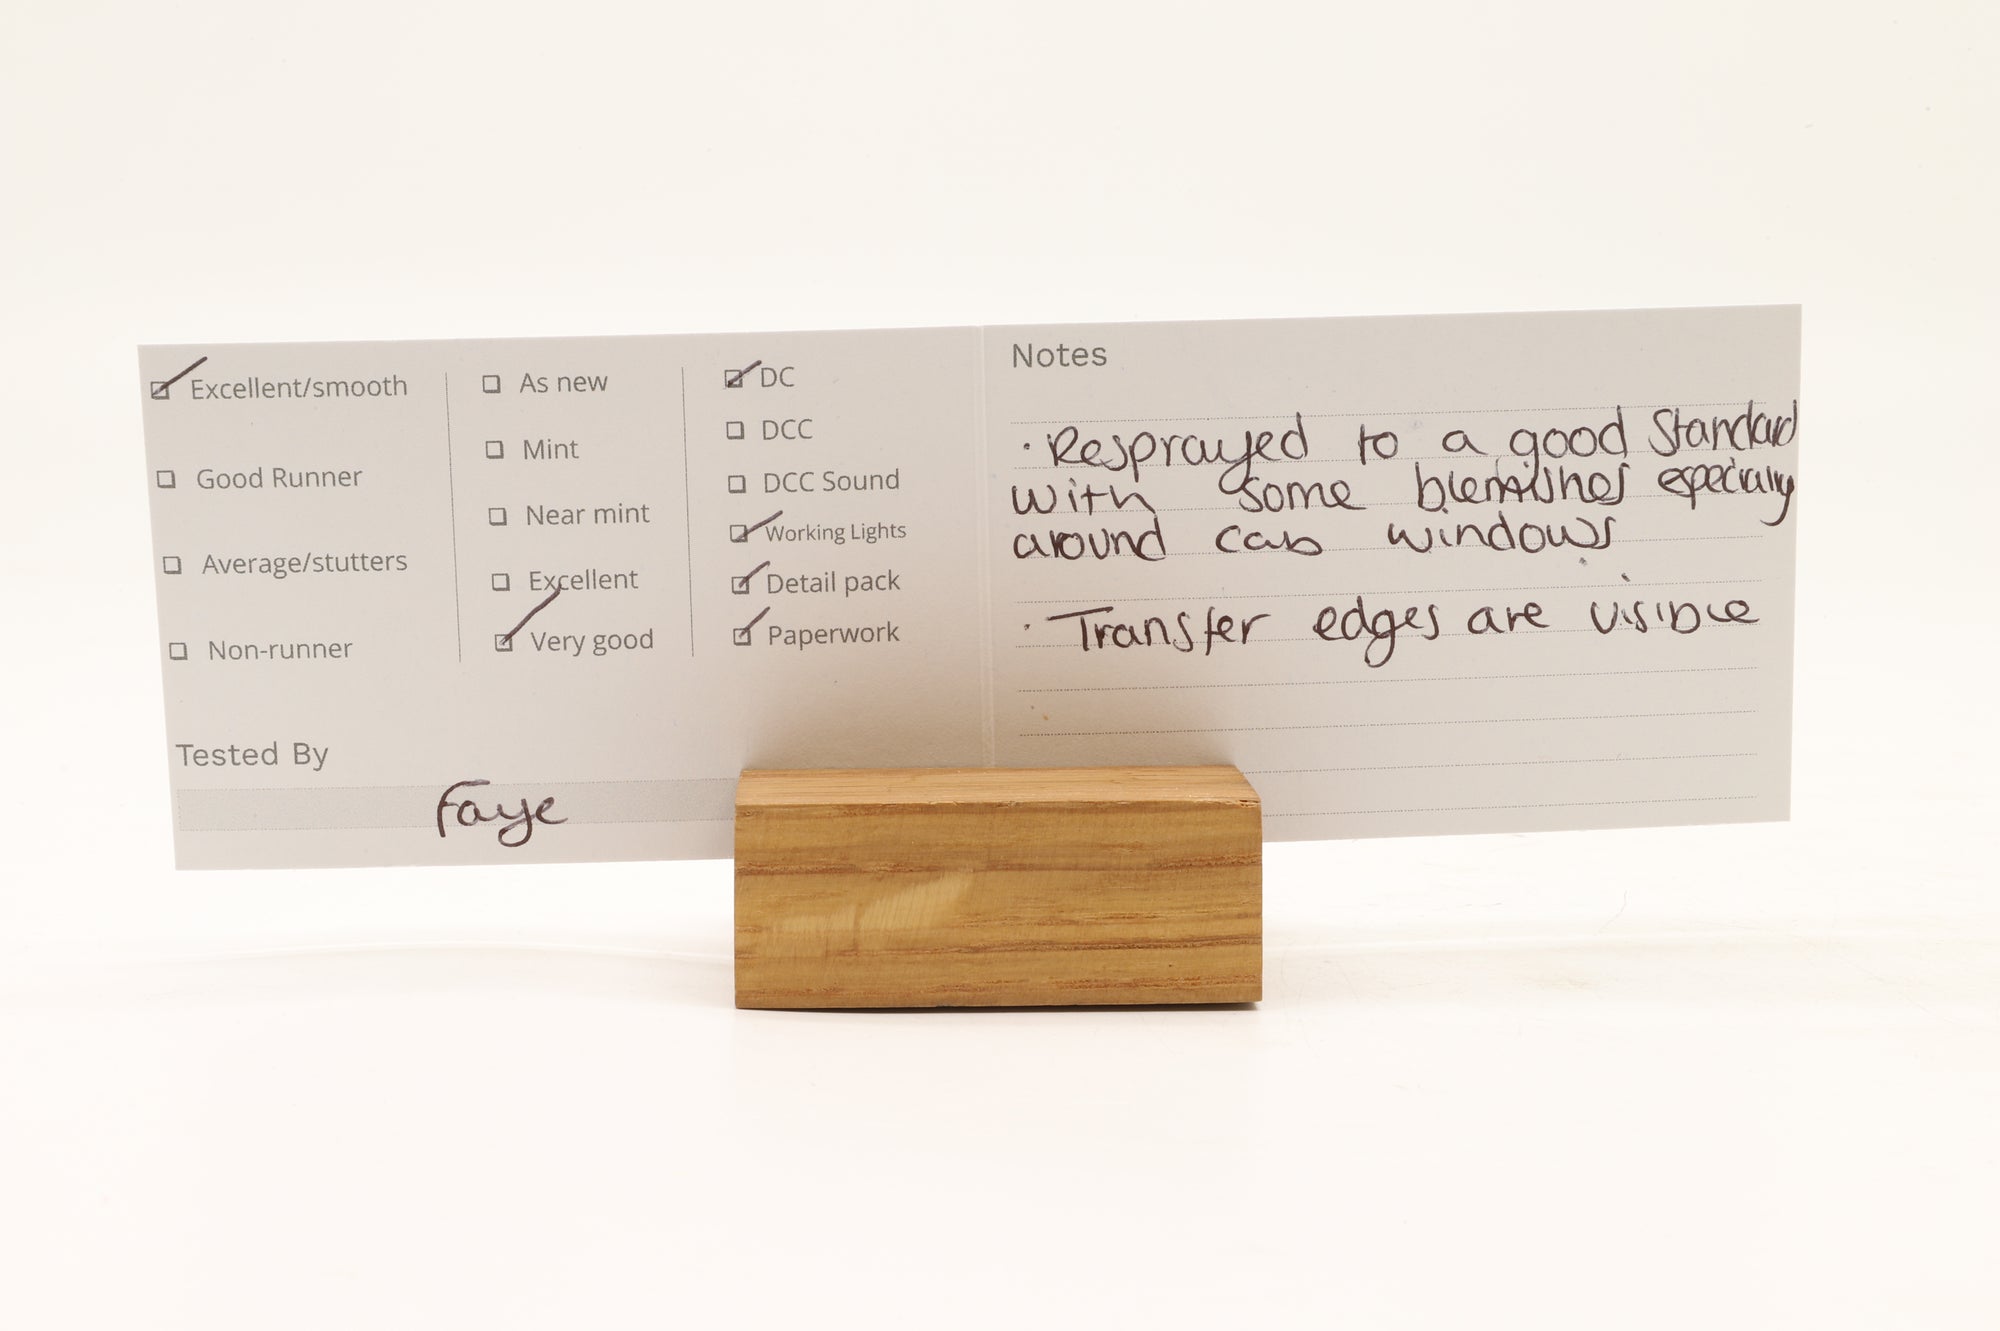 Excellent/smooth
Good Runner
Average/stutters
Non-runner
As new
Mint
Near mint
Excellent
Very good
DC
DCC
DCC Sound
Working Lights
Detail pack
Paperwork
Tested By
Faye
Notes
· Resprayed to a good standard
with some blemishes especially
around cab windows
· Transfer edges are visible